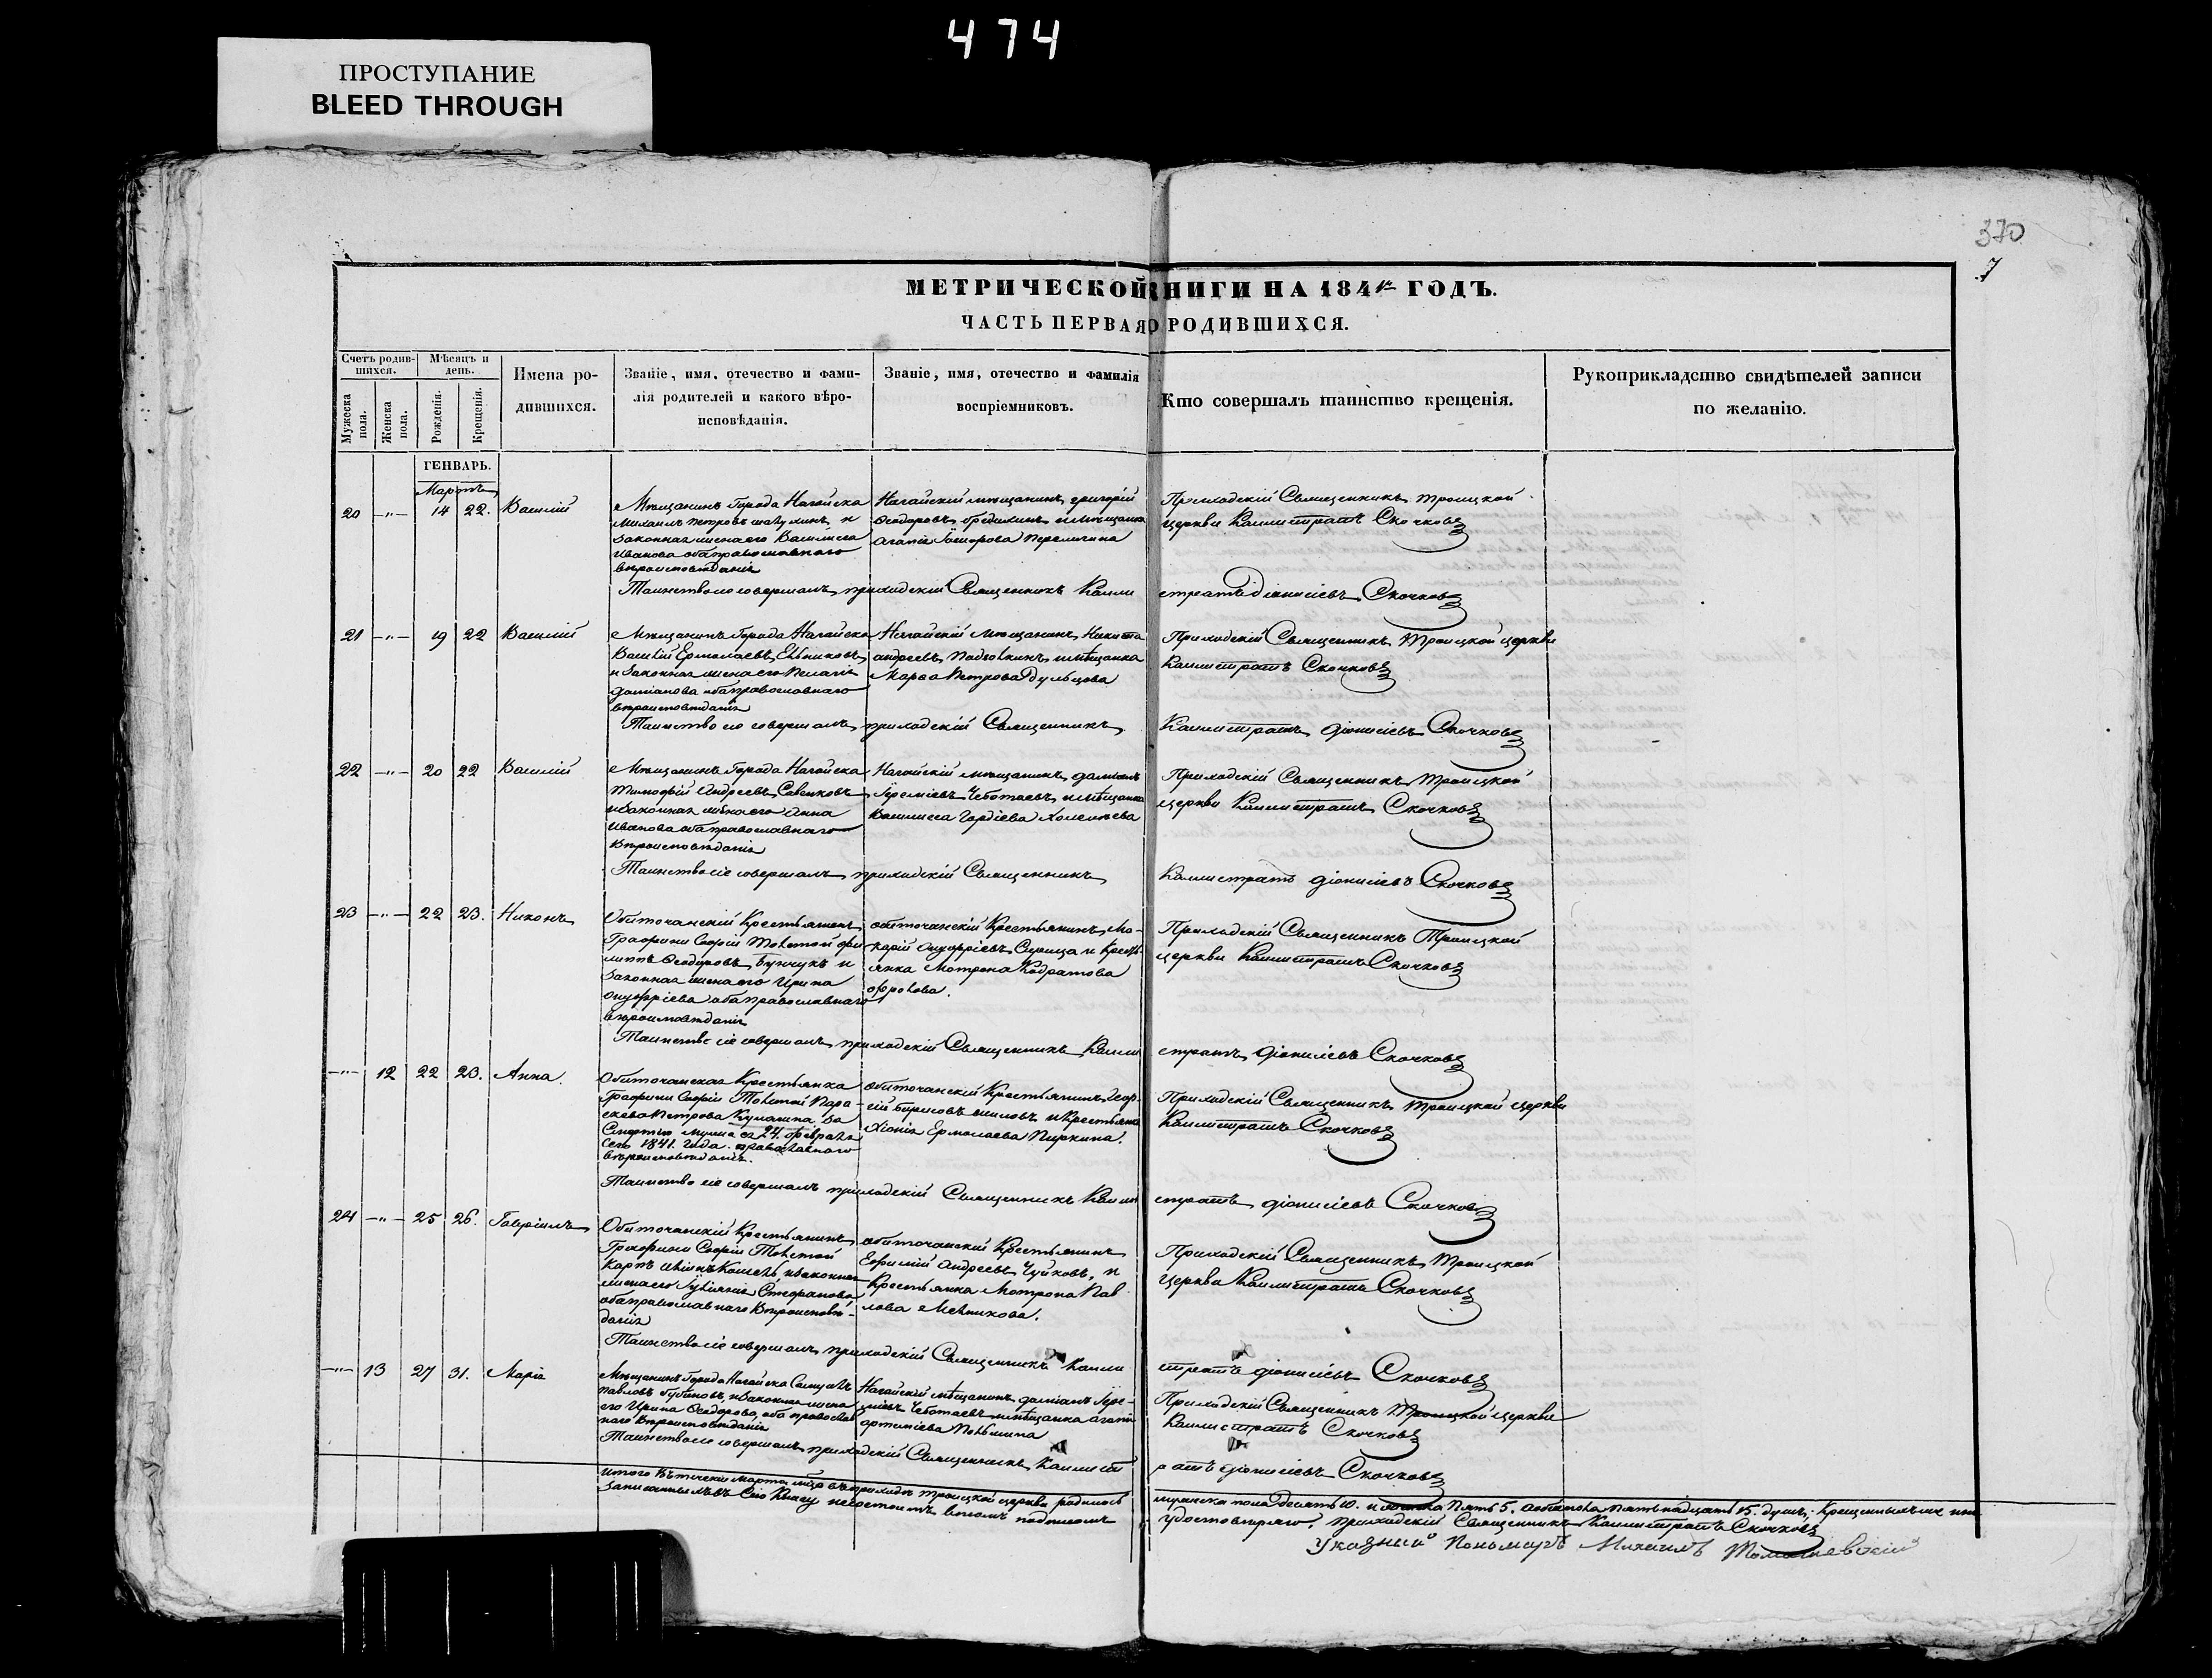 474
ПРОСТУПАНИЕ
BLEED THROUGH
370
7
МЕТРИЧЕСКОЙ КНИГИ НА 1841 ГОДЪ.
ЧАСТЬ ПЕРВАЯ О РОДИВШИХСЯ.
Счетъ родив-
шихся.
Мужеска пола.
Женска пола.
Мѣсяцъ и
день.
Рожденія.
Крещенія.
Имена ро-
дившихся.
Званіе, имя, отечество и фами-
лія родителей и какого вѣро-
исповѣданія.
Званіе, имя, отечество и фамилія
воспріемниковъ.
Кто совершалъ таинство крещенія.
Рукоприкладство свидѣтелей записи
по желанію.
ГЕНВАРЬ.
Мартъ
20 -"- 14 22. Василій
Мѣщанинъ Города Нагайска
Михаилъ Петровъ и
законная жена его Василиса
Иванова оба православнаго
вѣроисповѣданія
Нагайскій мѣщанинъ григорій
Ѳеодоровъ и мѣщанка
Приходскій Священникъ троицкой
церкви Каллистратъ Скочковъ
Таинство сіе совершалъ приходскій Священникъ Калли
стратъ діонисіевъ Скочковъ
21 -"- 19 22 Василій
Мѣщанинъ Города Нагайска
Василій Ермолаевъ
и законная жена его Пелагія
даміанова оба православнаго
вѣроисповѣданія
Нагайскій мѣщанинъ Никита
андреевъ и мѣщанка
Марѳа Петрова
Приходскій Священникъ троицкой церкви
Каллистратъ Скочковъ
Таинство сіе совершалъ приходскій Священникъ
Каллистратъ діонисіевъ Скочковъ
22 -"- 20 22 Василій
Мѣщанинъ Города Нагайска
Тимофій Андреевъ Савенковъ
и законная жена его Анна
Иванова оба православнаго
вѣроисповѣданія
Нагайскій мѣщанинъ даміанъ
Іереміевъ Чеботаевъ и мѣщанка
Василисса Гордіева
Приходскій Священникъ троицкой
церкви Каллистратъ Скочковъ
Таинство сіе совершалъ приходскій Священникъ
Каллистратъ діонисіевъ Скочковъ
23 -"- 22 23. Никонъ
Обиточанскій Крестьянинъ
Графини Софіи Толстой фи
липъ Ѳеодоровъ Бунчукъ и
законная жена его Ирина
онуфріева оба православнаго
вѣроисповѣданія
обиточанскій Крестьянинъ Ма-
карій онуфріевъ и кресть
янка Мотрона Кодратова
Приходскій Священникъ Троицкой
церкви Каллистратъ Скочковъ
Таинство сіе совершалъ приходскій Священникъ Калли
стратъ діонисіевъ Скочковъ
-"- 12 22 23. Анна.
Обиточанская Крестьянка
Графини Софіи Толстой Пара-
скева Петрова за
Смертію мужа съ 24. февраля
сего 1841. года. православнаго
вѣроисповѣданія.
обиточанскій Крестьянинъ Геор-
гій Борисовъ и Крестьянка
Хіонія Ермолаева Пиркина.
Приходскій Священникъ троицкой церкви
Каллистратъ Скочковъ
Таинство сіе совершалъ приходскій Священникъ Калли
стратъ діонисіевъ Скочковъ
24 -"- 25 26. Гавріилъ
Обиточанскій Крестьянинъ
Графини Софіи Толстой
и законная
жена его Іуліянія Стефанова
оба православнаго вѣроисповѣ-
данія
обиточанскій Крестьянинъ
Ефимій андреевъ Чуйковъ, и
Крестьянка Мотрона Пав
лова Мельникова.
Приходскій Священникъ троицкой
церкви Каллистратъ Скочковъ
Таинство сіе совершалъ приходскій Священникъ Калли
стратъ діонисіевъ Скочковъ
-"- 13 27 31. Марія
Мѣщанинъ Города Нагайска Самуилъ
Павловъ Губановъ, и законная жена
его Ирина Ѳеодорова, оба православ
наго вѣроисповѣданія
Нагайскій мѣщанинъ даміанъ Іере-
міевъ Чеботаевъ и мѣщанка агапія
артеміева
Приходскій Священникъ троицкой церкви
Каллистратъ Скочковъ
Таинство сіе совершалъ приходскій Священникъ Каллист
ратъ діонисіевъ Скочковъ
Итого въ теченіи Марта въ приходѣ троицкой церкви родилось
мужеска пола десять 10. и женска пять 5. обоего пола пятьнадцать 15. душъ; Крещенныхъ
записанныхъ въ Сію Книгу несостоитъ въ томъ подписомъ
удостовѣряю. приходскій Священникъ Каллистратъ Скочковъ
Указный Пономарь Михаилъ